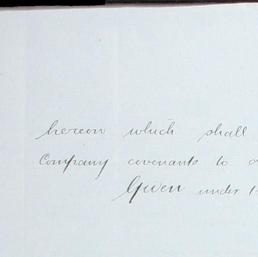 hereon which shall
Company covenants to
Given under